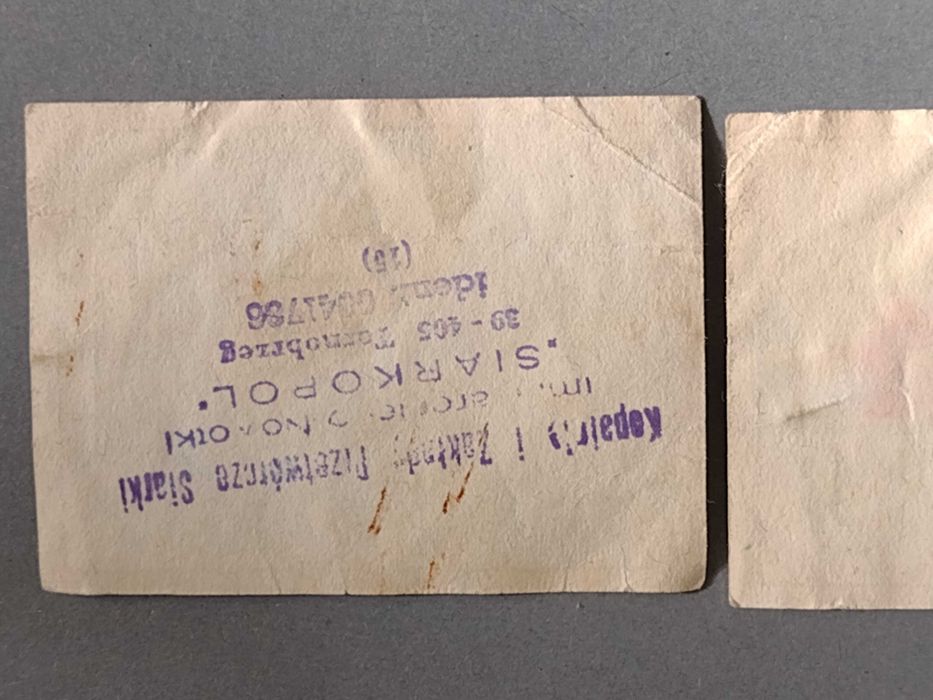 Kopalnie i Zakłady Przetwórcze Siarki
im. Marcelego Nowotki
"SIARKOPOL"
39-405 Tarnobrzeg
ident. 6041786
(15)